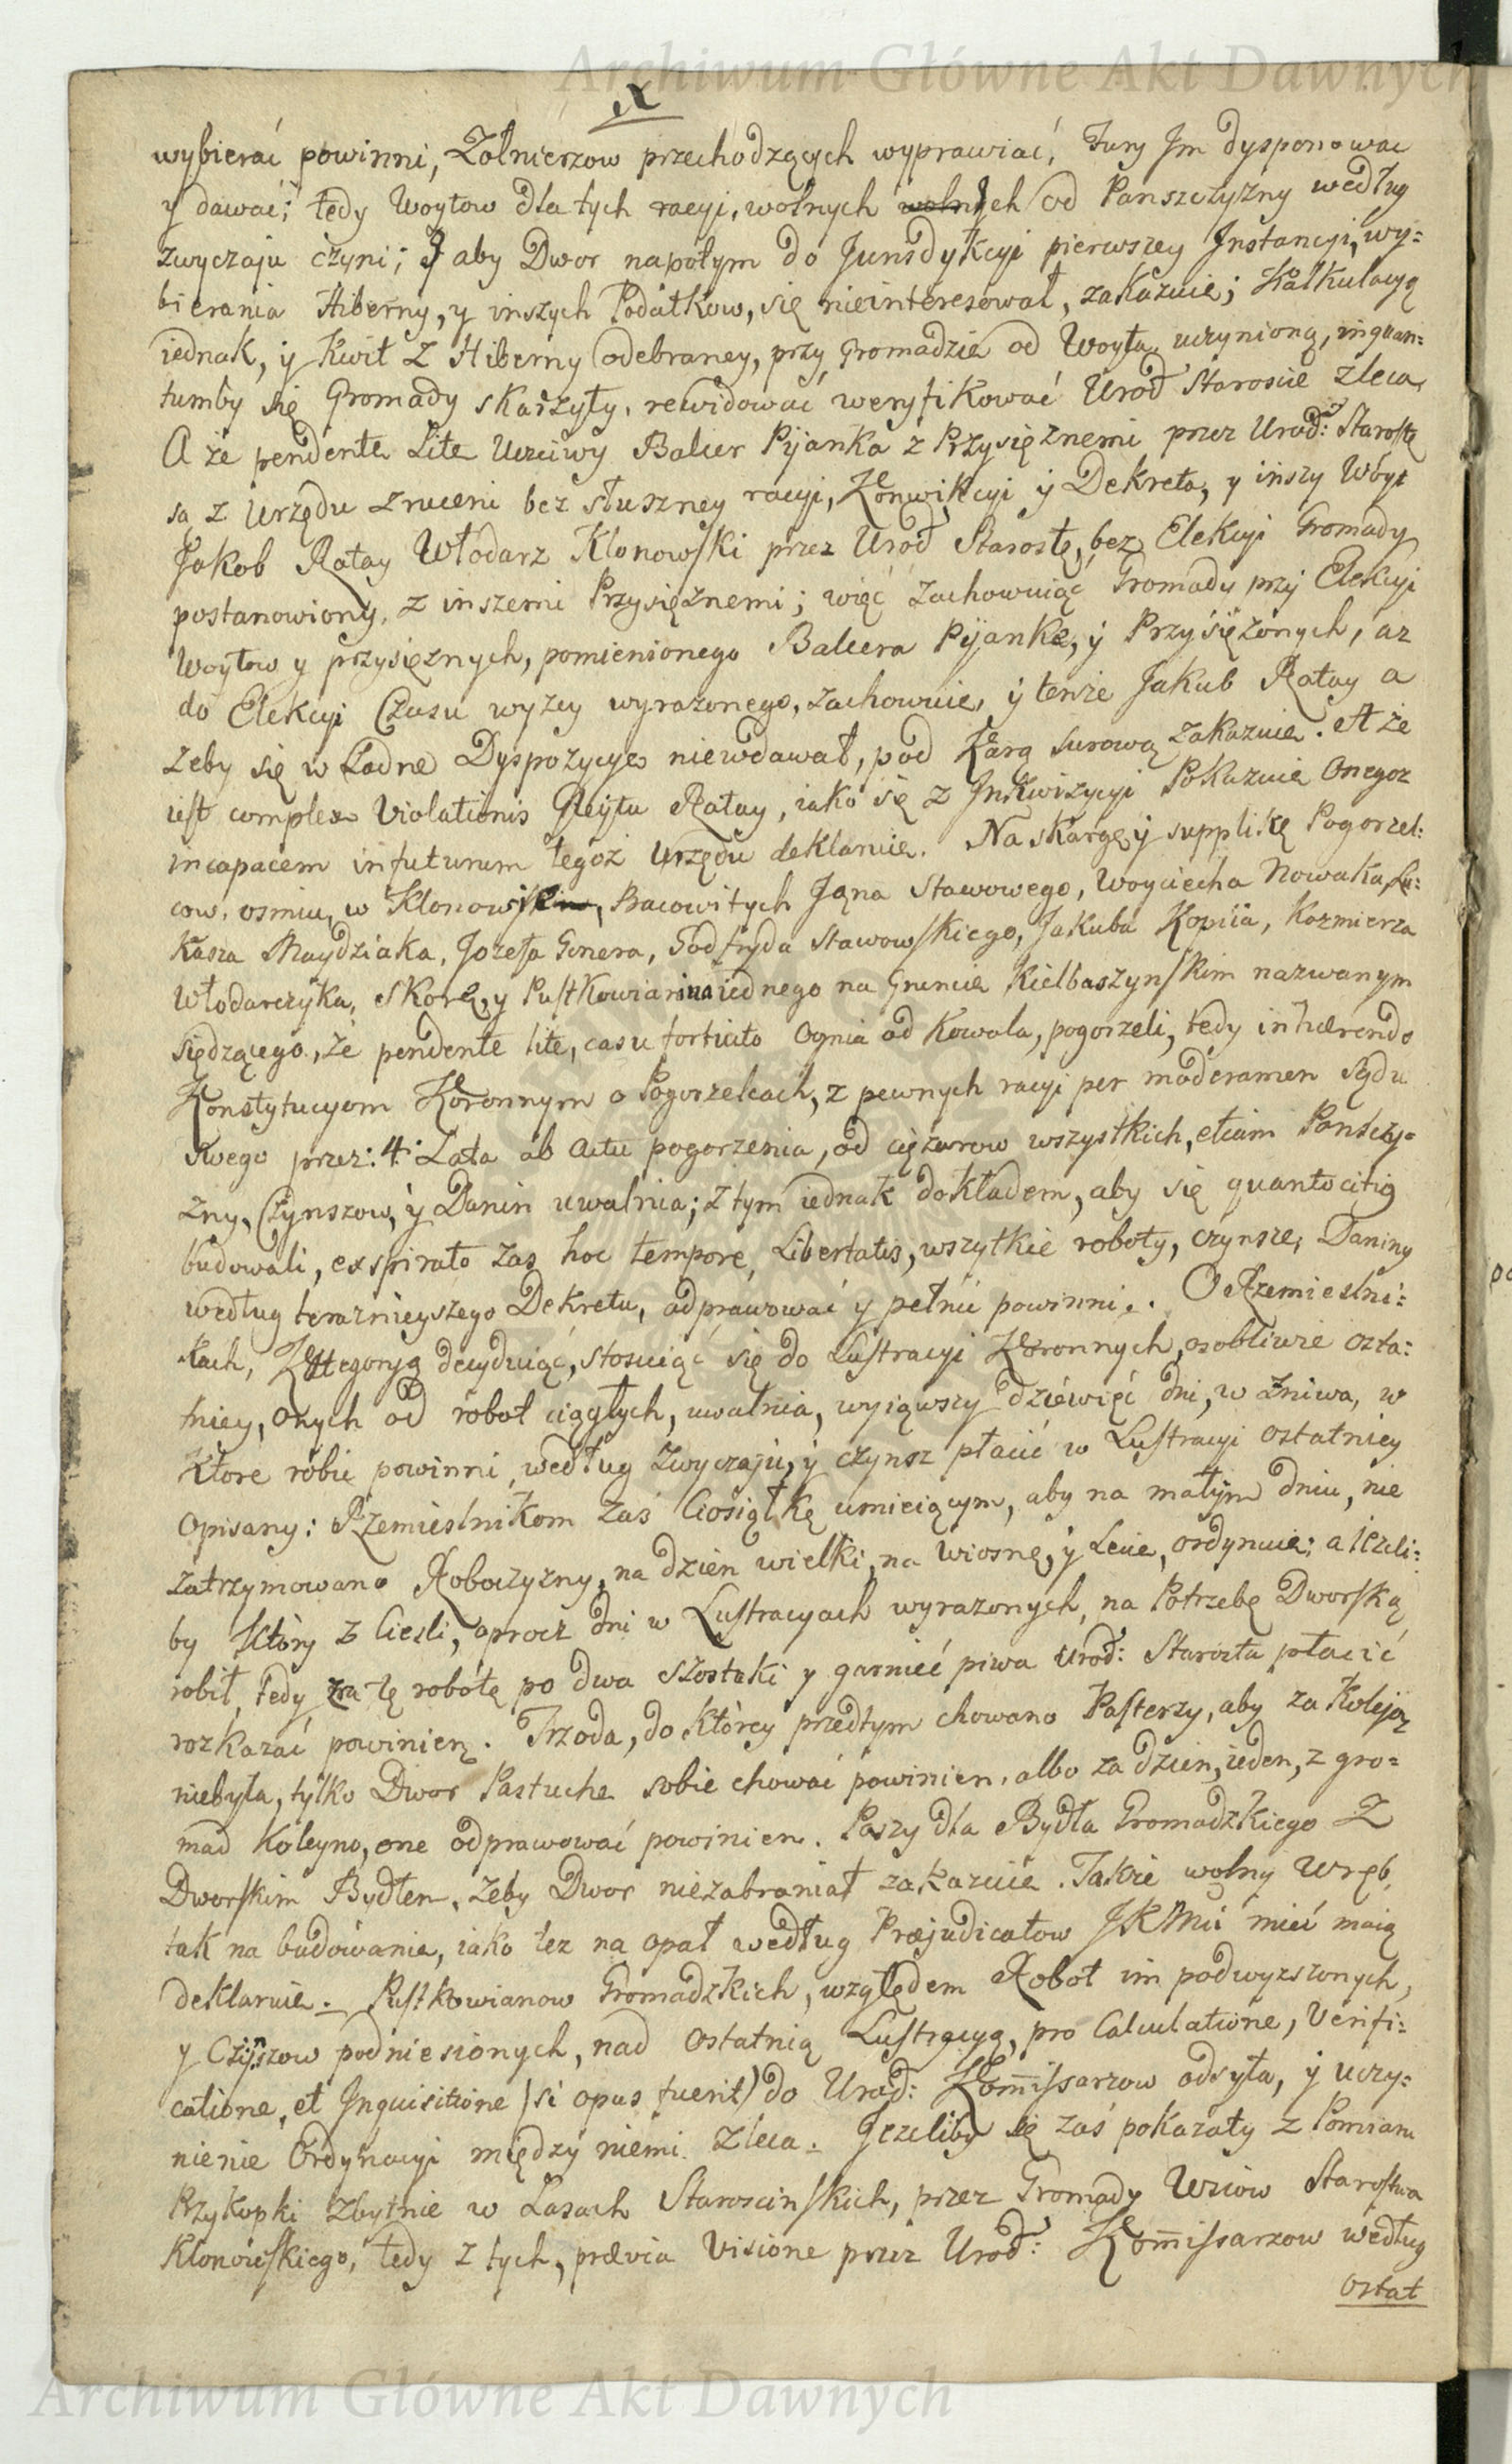 Archiwum Główne Akt Dawnych
wybierać powinni, Zołnierzow przechodzących wyprawiać, Fury Jm dysponowac
y dawać; tedy Woytow dla tych racyi, wolnych od Panszczyzny według
zwyczaju czyni; J aby Dwor napotym do Jurisdykcyi pierwszey Instancyi, wy=
bierania Hiberny, y inszych Podatkow, się nieinteresował, zakazuie; Kalkulacyą
iednak, y Kwit z Hiberny odebraney, przy Gromadzie od Woyta uczynioną, inquan=
tumby się Gromady skarżyły, rewidować weryfikować Urod Staroście zleca,
A że pendente Lite Uczciwy Balcer Pijanka z Przysięznemi przez Urod: Starostę
są z Urzędu zruceni bez słuszney racyi, Konwikcyi y Dekretu, y inszy Wóyt
Jakob Ratay Włodarz Klonowski przez Urod Starostę, bez Elekcyi Gromady
postanowiony, z inszemi Przysięznemi; więć zachowuiąc Gromady przy Elekcyi
Woytow y przysięznych, pomienionego Balcera Pijankę, y Przysięzonych, az
do Elekcyi Czasu wyzey wyrazonego, zachowuie, y tenże Jakub Ratay a
zeby się w żadne Dyspozycye niewdawał, pod Karą surową zakazuie. A że
iest complex Violationis Gleytu Ratay, iako się z Inkwizycyi Pokazuie Onegoz
incapacem infuturum tegoż Urzędu deklaruie. Na skargę y supplikę Pogorzel:
cow, osmiu, w Klonow Pracowitych Jana Stawowego, Woyciecha Nowaka, Lu:
kasza Maydziaka, Jozefa Gonera, Godfryda Stawowskiego, Jakuba Kopiia, Kazmierza
Włodarczyka, Skorę, y Pustkowianina iednego na Gruncie Kiełbaszynskim nazwanym
siędzącego, że pendente lite, casu fortuito Ognia od Kowala, pogorzeli, tedy inhærendo
Konstytucyom Koronnym o Pogorzelcach, z pewnych racyi per moderamen Sądu
Swego przez: 4: Lata ab actu pogorzenia, od cięzarow wszystkich, etiam Panszczy=
zny, Czynszow, y Danin uwalnia; z tym iednak dokładem, aby się quanto citiq
budowali, exspirato zas hoc tempore, Libertatis, wszytkie roboty, czynsze, Daniny
według teraznieyszego Dekretu, odprawować y pełnić powinni. O Rzemieslni:
kach, Kattegoryą decyduiąć, stosuiąć się do Lustracyi Koronnych, osobliwie osta:
tniey, Onych od robot ciągłych, uwalnia, wyiąwszy dziéwięć dni, w żniwa, w
które robić powinni, według zwyczaju, y czynsz płacić w Lustracyi ostatniey
Opisany: Rzemieslnikom zaś Ciosiątkę umieiącym, aby na małym dniu, nie
zatrzymowano Roboczyzny, na dzien wielki, na wiosnę, y Lecie, ordynuie; a iezeli:
by Który z Ciesli, oprocz dni w Lustracyach wyrazonych, na Potrzebę Dworską
robił, tedy za tę robotę po dwa szostaki y garnieć piwa Urod: Starosta płacić
rozkazać powinien. Trzoda, do którey przedtym chowano Pasterzy, aby za Koleją
niebyła, tylko Dwor Pastucha sobie chować powinien, albo za dzien, ieden, z gro=
mad Koleyno, one odprawować powinien. Paszy dla Bydła Gromadzkiego z
Dworskim Bydłem, zeby Dwor niezabraniał zakazuie. Takze wolny Wręb,
tak na budowanie, iako też na opał według Præjudicatow JKMci mieć maią
deklaruie. Pustkowianow Gromadzkich, względem Robot im podwyzszonych,
y Czynszow podniesionych, nad ostatnią Lustracyą, pro Calculatione, Verifi:
catione, et Inquisitione (si opus fuerit) do Urod: Kommissarzow odsyła, y uczy:
nienie Ordynacyi między niemi zleca. Jezeliby się zaś pokazały z Pomiaru
Przykopki zbytnie w Lasach Staroscinskich, przez Gromady Wsiow Starostwa
Klonowskiego, tedy z tych, prævia Visione przez Urod: Kommissarzow według
ostat
Archiwum Główne Akt Dawnych